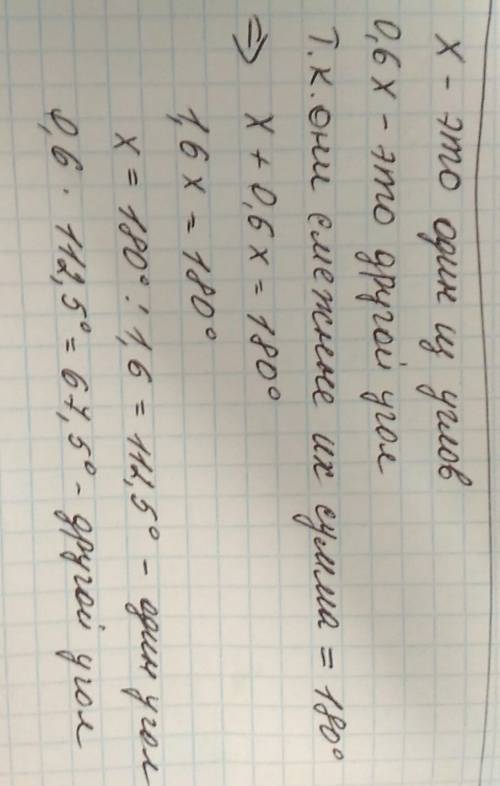 X - это один из углов
0,6 X - это другой угол
Т.к. они смежные их сумма = 180°
⇒ X + 0,6 x = 180°
1,6 x = 180°
x = 180° : 1,6 = 112,5° - один угол
0,6 · 112,5° = 67,5° - другой угол